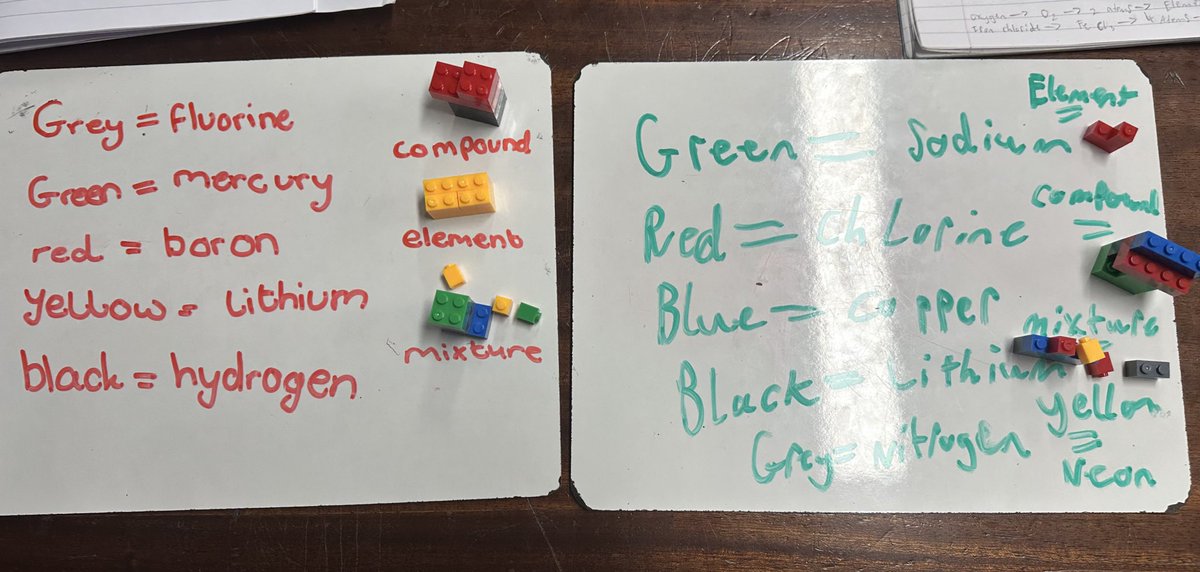 oxygen → O₂ → 2 Atoms → Elem
Iron chloride → FeCl₃ → 4 Atoms
Grey = fluorine
compound
Green = mercury
element
red = boron
yellow = Lithium
mixture
black = hydrogen
Element
Green = Sodium
compound
Red = ChLorine
Blue = Copper
mixture
Black = Lithium
yellow
Grey = Nitrogen
=
Neon